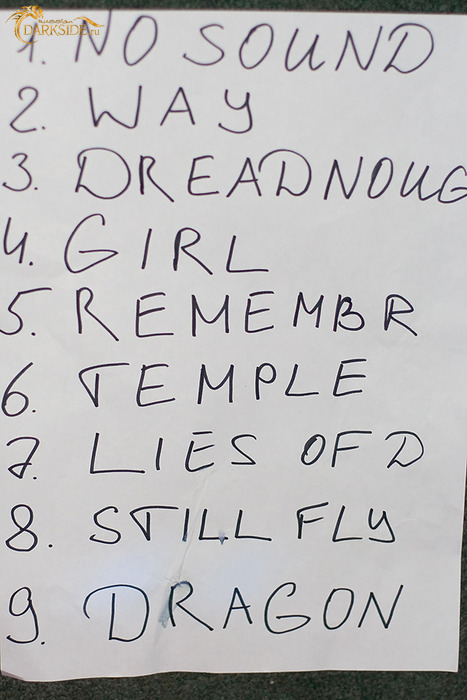 Russian
DARKSIDE.ru
1. NO SOUND
2. WAY
3. DREADNOUG
4. GIRL
5. REMEMBR
6. TEMPLE
7. LIES OF D
8. STILL FLY
9. DRAGON